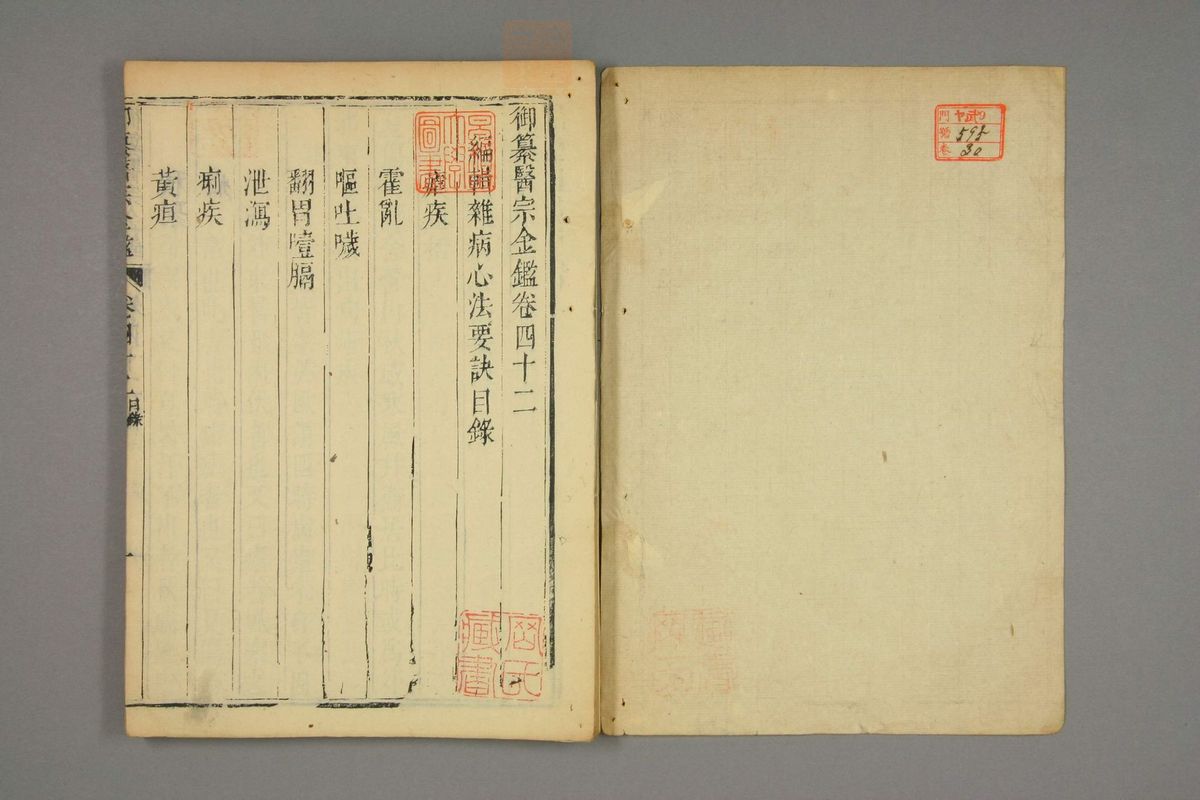 御纂醫宗金鑑卷四十二
編輯雜病心法要訣目錄
瘧疾
霍亂
嘔吐噦
翻胃噎膈
泄瀉
痢疾
黃疸
目錄
圖書
藏書
門
號 595
卷 30